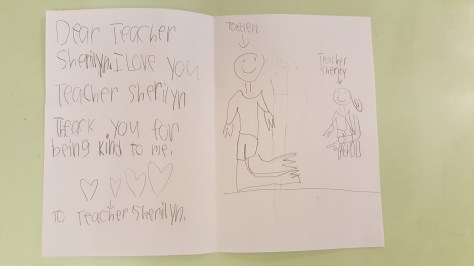 Dear Teacher
Sherilyn. I Love you
Teacher Sherilyn
Thank you for
being kind to me.
To Teacher Sherilyn.
Teacher